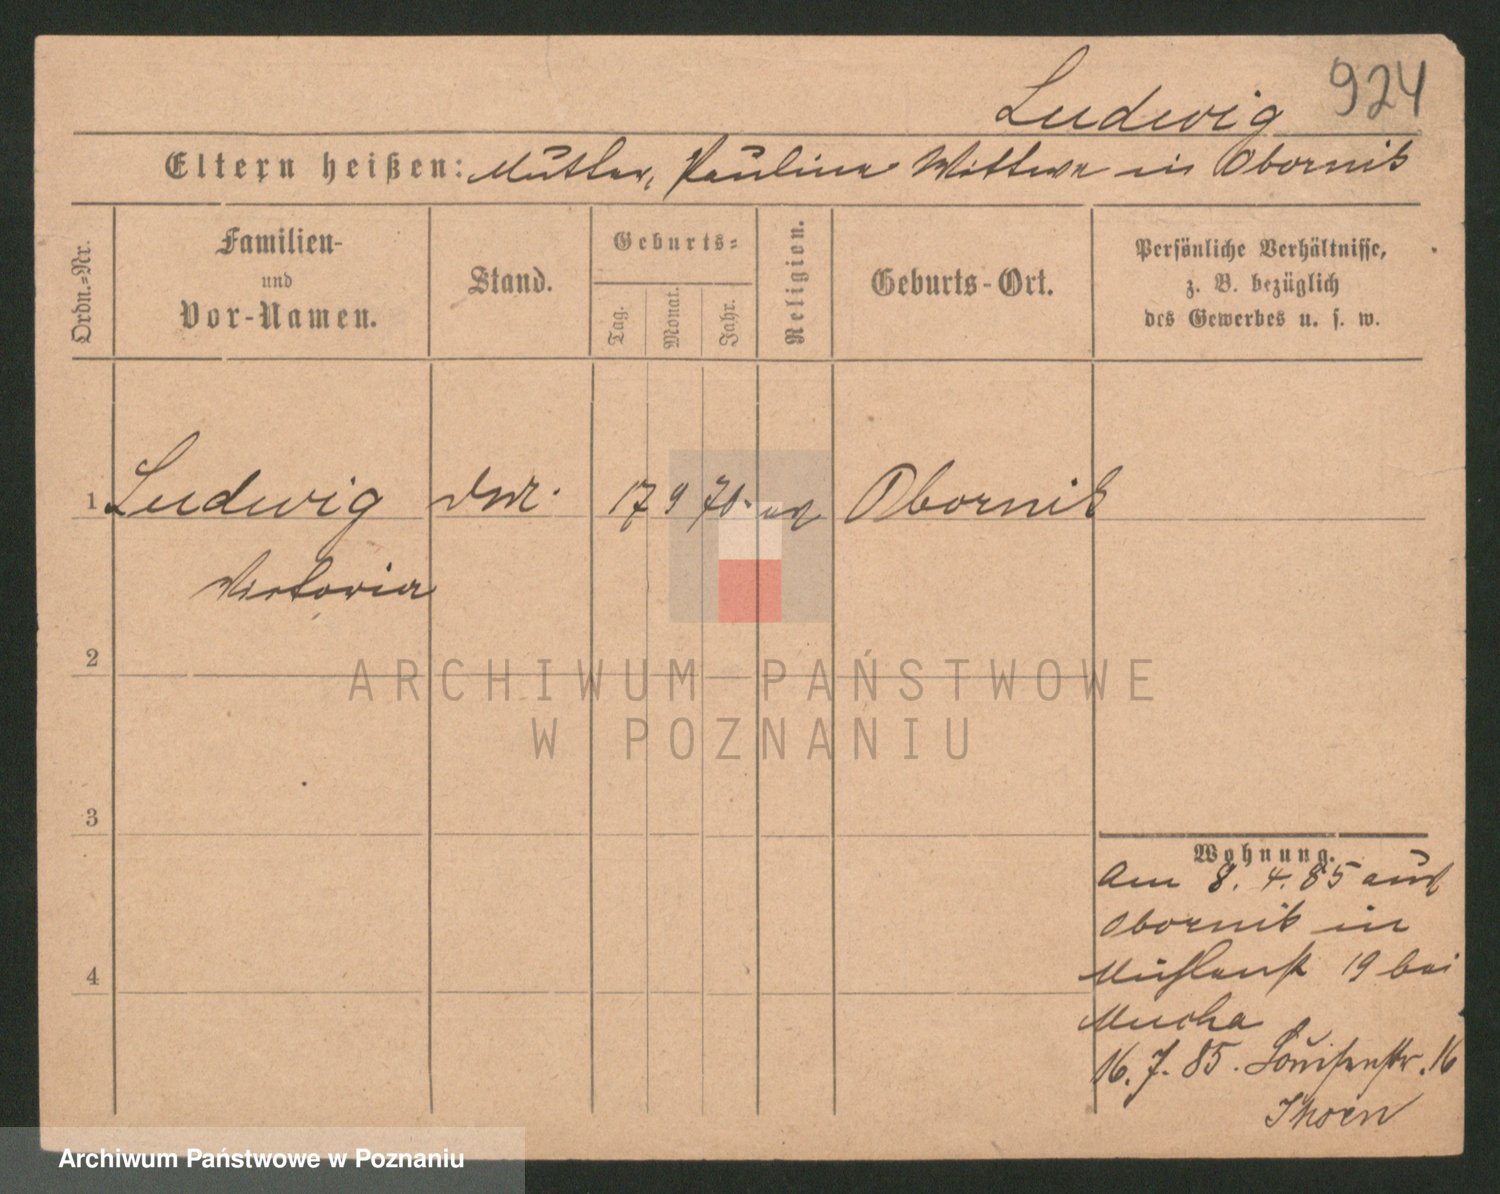 924
Ludwig
Eltern heißen: Mutter, Pauline Wittwe in Obornik
Ordn.=Nr.
Familien-
und
Vor-Namen.
Stand.
Geburts=
Tag.
Monat.
Jahr.
Religion.
Geburts-Ort.
Persönliche Verhältnisse,
z. B. bezüglich
des Gewerbes u. s. w.
1 Ludwig 17 9 70. Obornik
Victoria
2
ARCHIWUM PAŃSTWOWE
W POZNANIU
3
4
Wohnung.
Am 8. 4. 85 aus
Obornik in
Mühlenst 19 bei
Mucha
16. 7. 85. Louisenstr. 16
Archiwum Państwowe w Poznaniu